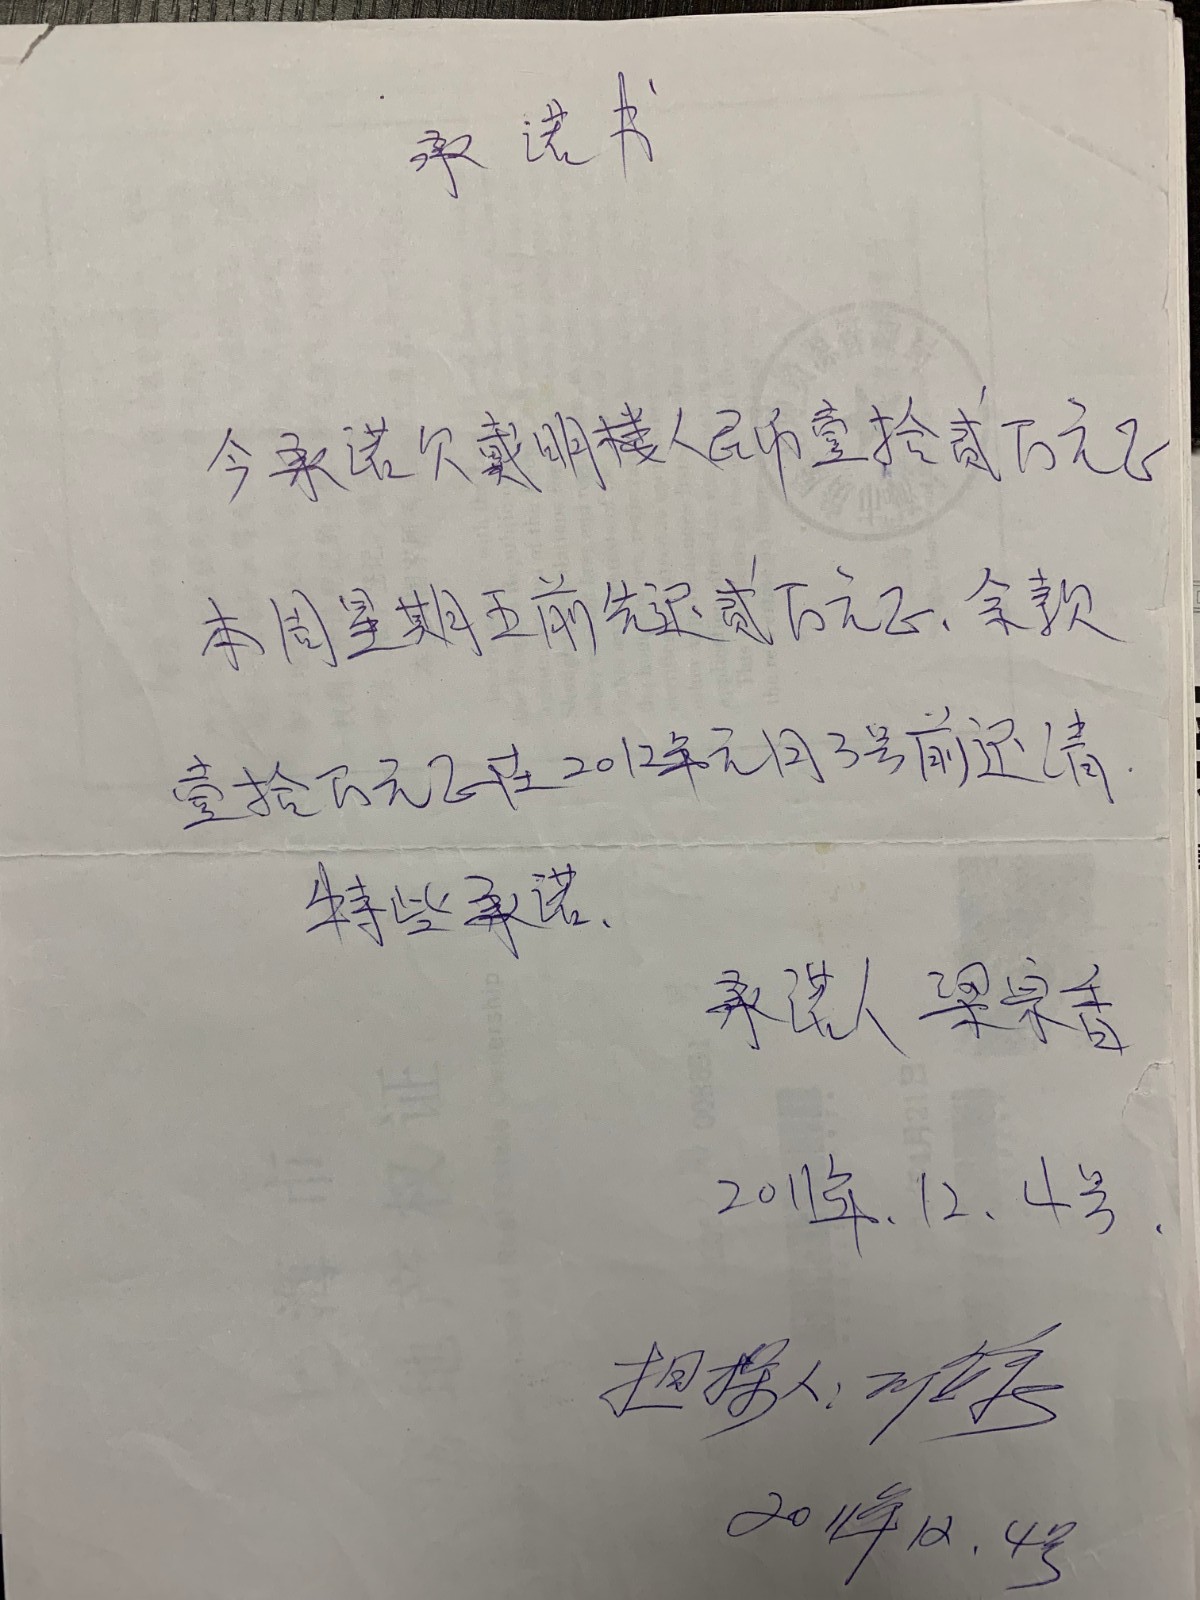 承诺书
今承诺欠戴明楼人民币壹拾贰万元正
本周星期五前先还贰万元正、余款
壹拾万元正在2012年元月3号前还清.
特些承诺、
承诺人 梁宗香
2011年.12.4号.
担保人:
2011年12.4号